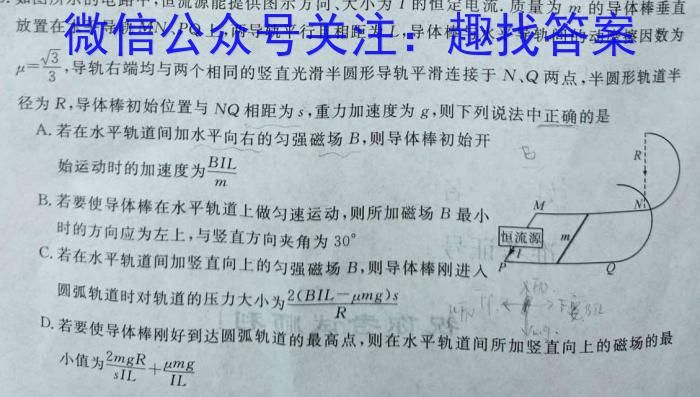 如图所示的电路中,恒流源能提供图示方向、大小为 I 的恒定电流.质量为 m 的导体棒垂直
放置在水平导轨MN、PQ上,两导轨平行且相距为L,导体棒与水平导轨间的动摩擦因数为
微信公众号关注:趣找答案
μ=√3/3,导轨右端均与两个相同的竖直光滑半圆形导轨平滑连接于 N、Q 两点,半圆形轨道半
径为 R,导体棒初始位置与 NQ 相距为 s,重力加速度为 g,则下列说法中正确的是
A. 若在水平轨道间加水平向右的匀强磁场 B,则导体棒初始开
始运动时的加速度为BIL/m
B. 若要使导体棒在水平轨道上做匀速运动,则所加磁场 B 最小
时的方向应为左上,与竖直方向夹角为 30°
C. 若在水平轨道间加竖直向上的匀强磁场 B,则导体棒刚进入
圆弧轨道时对轨道的压力大小为2(BIL-μmg)s/R
D. 若要使导体棒刚好到达圆弧轨道的最高点,则在水平轨道间所加竖直向上的磁场的最
小值为2mgR/sIL+μmg/IL
B
R
M
N
恒流源
m
I
P
Q